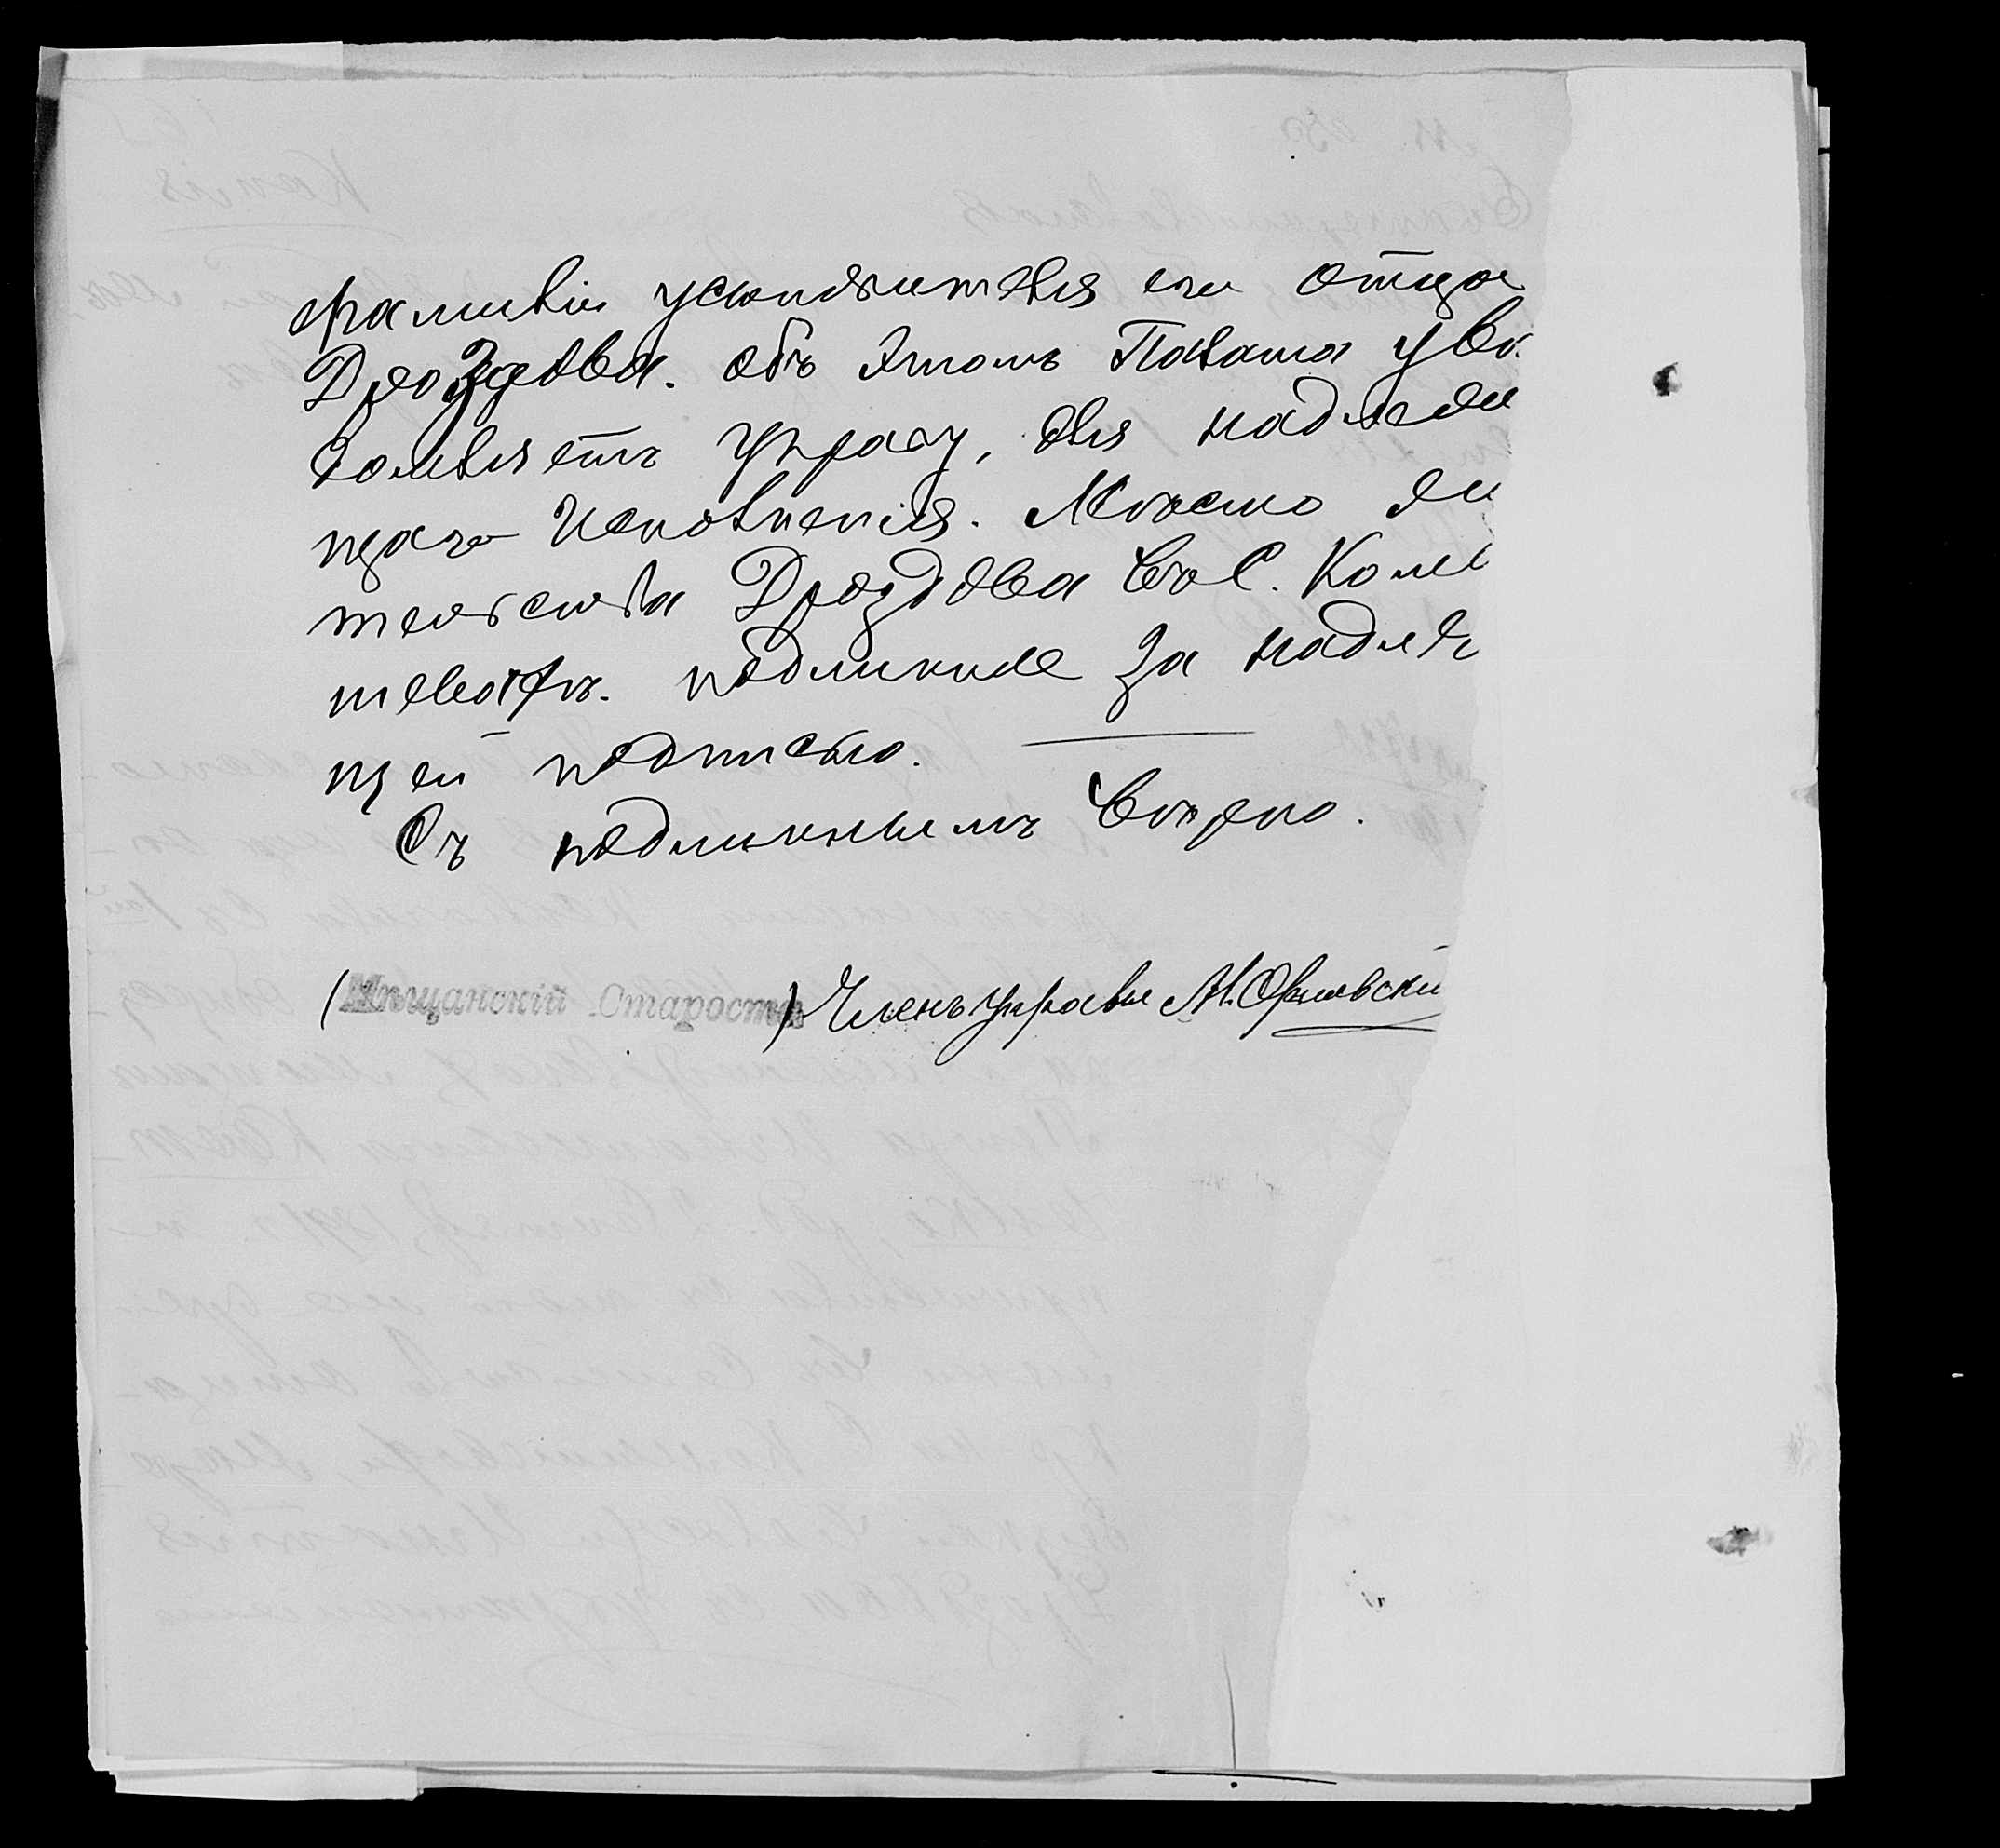 фамиліи усыновителя его отца
Дроздова. Объ этомъ Палата уве
домляетъ Управу, для надлежа
щаго исполненія. Мѣсто жи
тельства Дроздова въ С.
подлинное за надле
щей подписью.
Съ подлиннымъ вѣрно.
(Мѣщанскій Староста) Членъ Управы